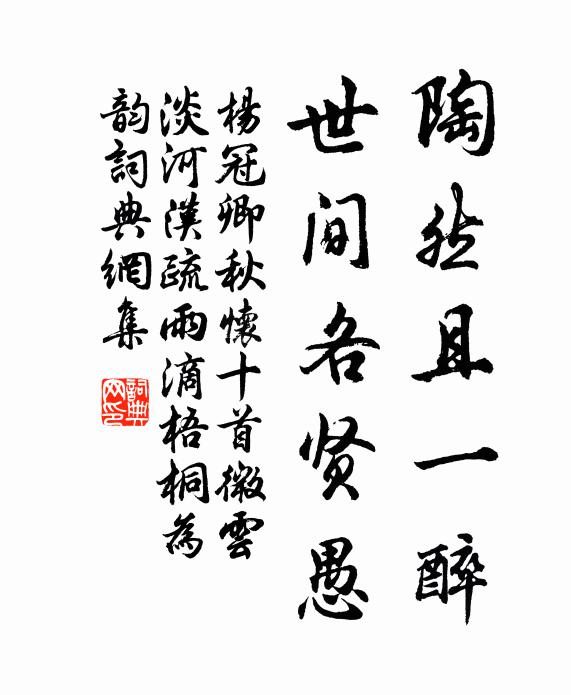 陶然且一醉
世间各贤愚
楊冠卿秋懷十首微雲
淡河漢疏雨滴梧桐為
韵詞典網集
詞典網印